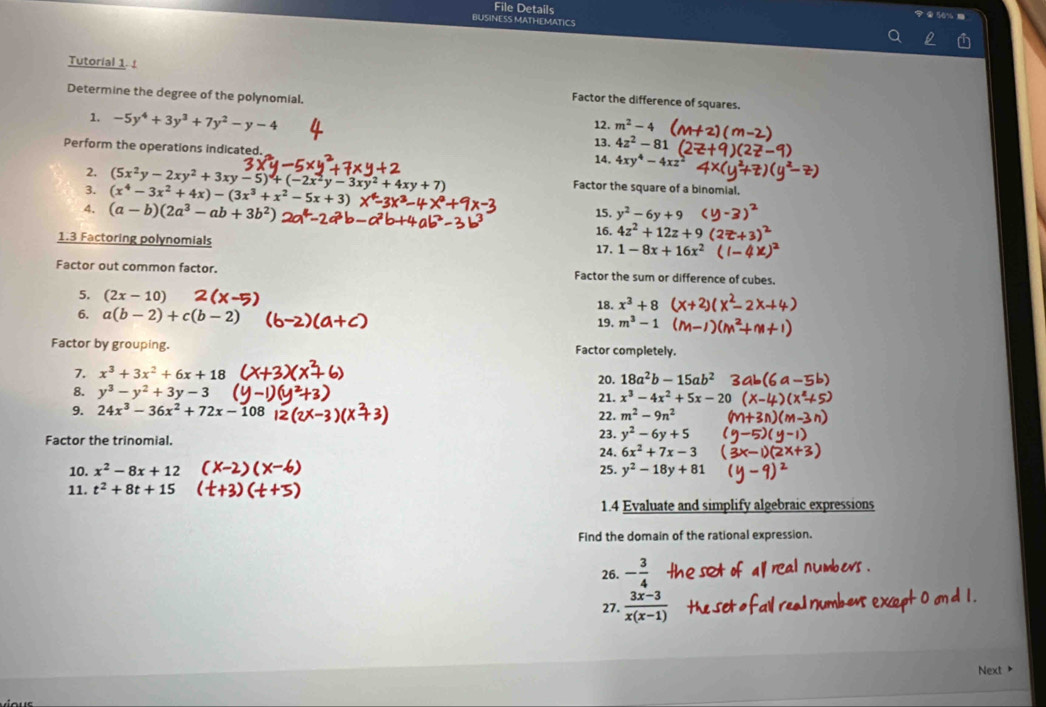 File Details
BUSINESS MATHEMATICS
56%
Tutorial 1.
Determine the degree of the polynomial.
1. -5y⁴ + 3y³ + 7y² - y - 4 4
Perform the operations indicated.
3x²y-5xy²+7xy+2
2. (5x²y - 2xy² + 3xy - 5) + (-2x²y - 3xy² + 4xy + 7)
3. (x⁴ - 3x² + 4x) - (3x³ + x² - 5x + 3) x⁴-3x³-4x²+9x-3
4. (a - b)(2a³ - ab + 3b²) 2a⁴-2a³b-a²b+4ab²-3b³
1.3 Factoring polynomials
Factor out common factor.
5. (2x - 10) 2(x-5)
6. a(b - 2) + c(b - 2) (b-2)(a+c)
Factor by grouping.
7. x³ + 3x² + 6x + 18 (x+3)(x²+6)
8. y³ - y² + 3y - 3 (y-1)(y²+3)
9. 24x³ - 36x² + 72x - 108 12(2x-3)(x²+3)
Factor the trinomial.
10. x² - 8x + 12 (x-2)(x-6)
11. t² + 8t + 15 (t+3)(t+5)
Factor the difference of squares.
12. m² - 4 (m+2)(m-2)
13. 4z² - 81 (2z+9)(2z-9)
14. 4xy⁴ - 4xz² 4x(y²+z)(y²-z)
Factor the square of a binomial.
15. y² - 6y + 9 (y-3)²
16. 4z² + 12z + 9 (2z+3)²
17. 1 - 8x + 16x² (1-4x)²
Factor the sum or difference of cubes.
18. x³ + 8 (x+2)(x²-2x+4)
19. m³ - 1 (m-1)(m²+m+1)
Factor completely.
20. 18a²b - 15ab² 3ab(6a-5b)
21. x³ - 4x² + 5x - 20 (x-4)(x²+5)
22. m² - 9n² (m+3n)(m-3n)
23. y² - 6y + 5 (y-5)(y-1)
24. 6x² + 7x - 3 (3x-1)(2x+3)
25. y² - 18y + 81 (y-9)²
1.4 Evaluate and simplify algebraic expressions
Find the domain of the rational expression.
26. -3/4 the set of all real numbers.
27. (3x-3)/(x(x-1)) the set of all real numbers except 0 and 1.
Next